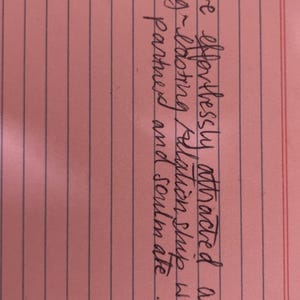 e effortlessly attracted a
g-lasting relationship w
partner and soulmate.